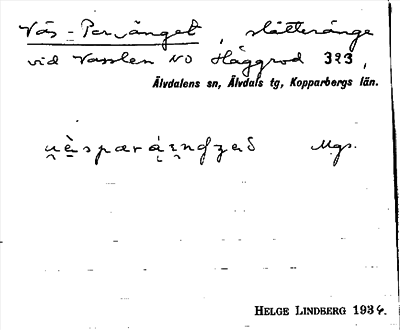 Väs-Per-änget, slåtteränge
vid Vasslen NO Häggrod 393,
Älvdalens sn, Älvdals tg, Kopparbergs län.
Mgs.
HELGE LINDBERG 1934.